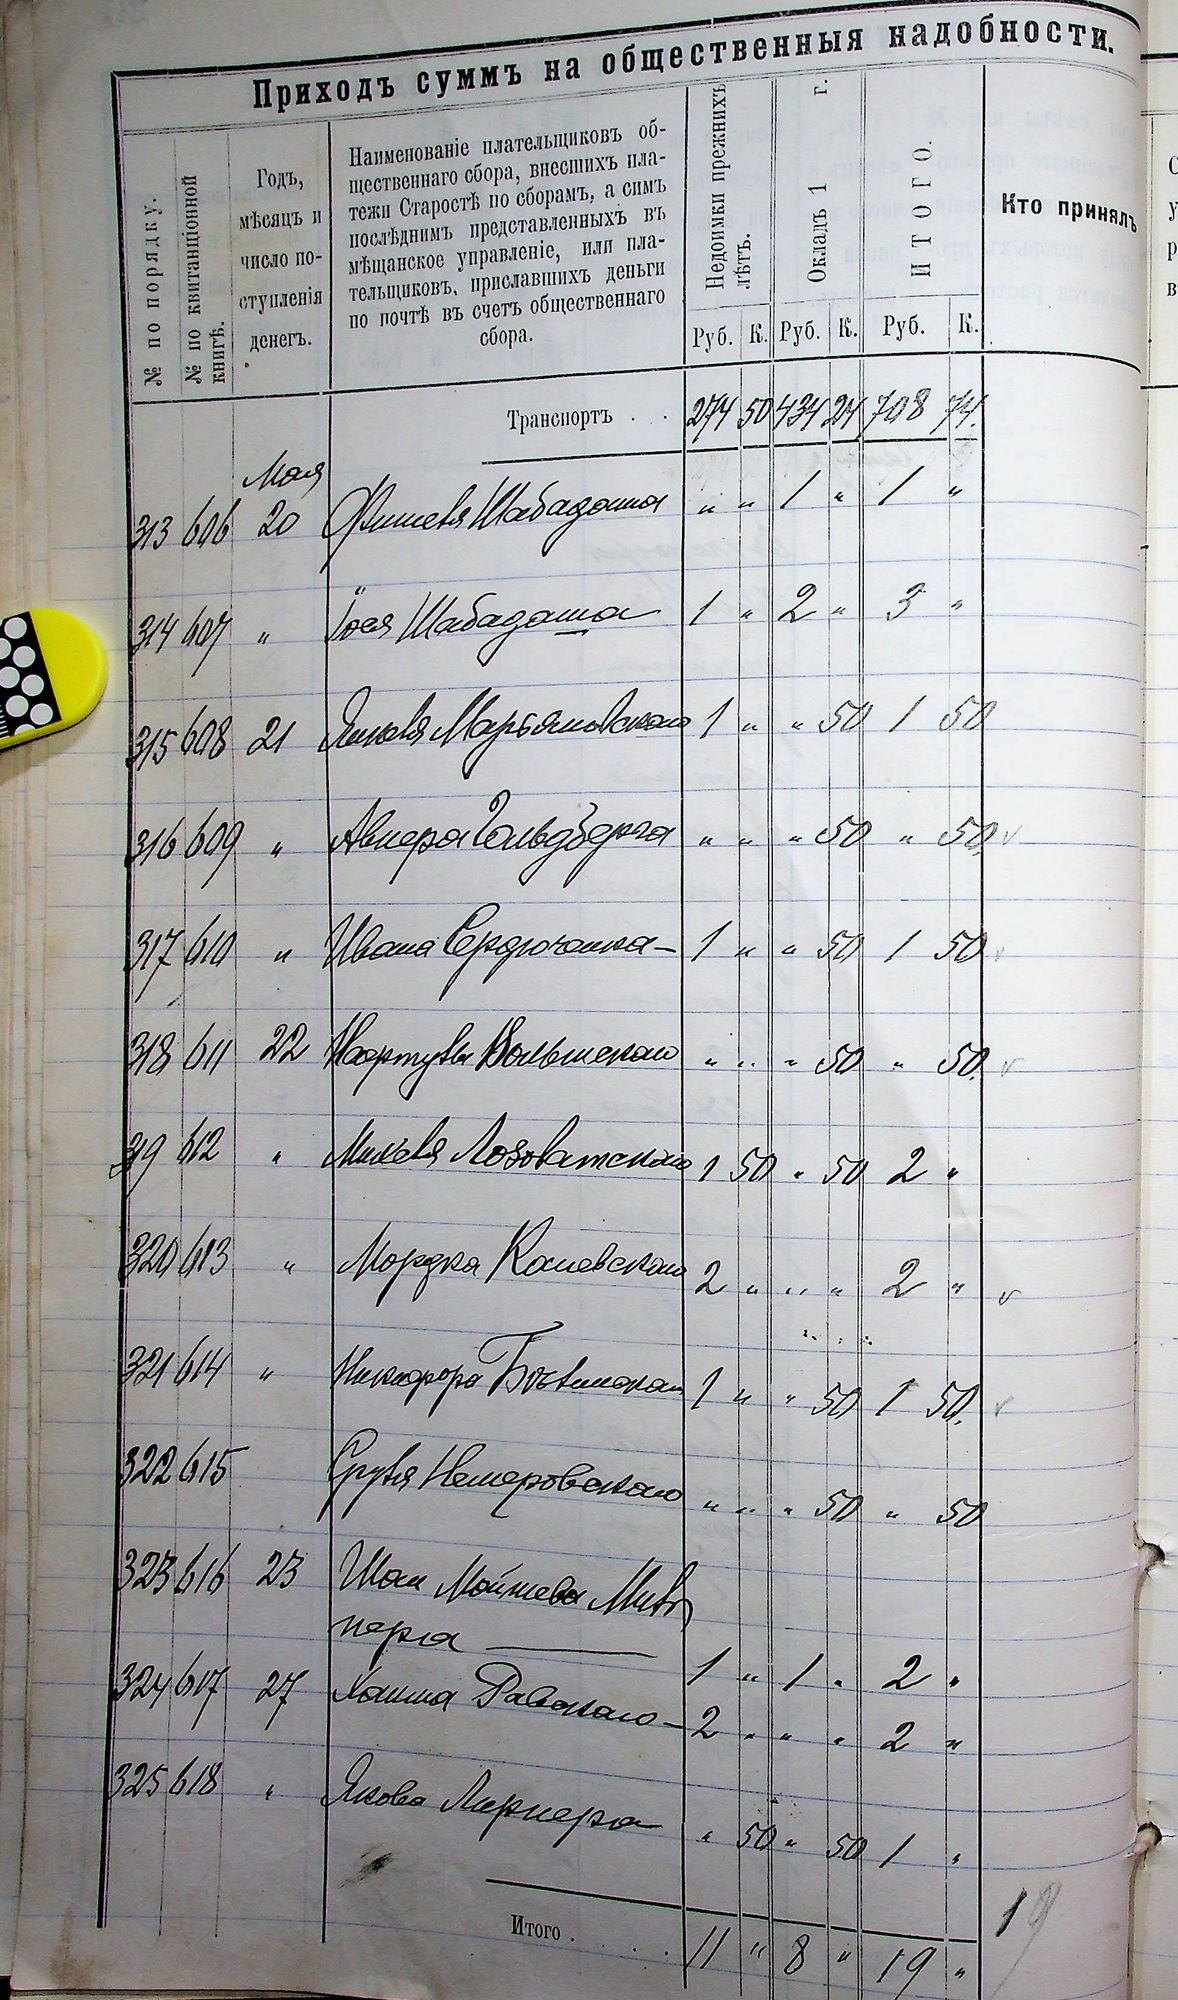 Приходъ суммъ на общественныя надобности.
№ по порядку.
№ по квитанціонной
книгѣ.
Годъ,
мѣсяцъ и
число по-
ступленія
денегъ.
Наименованіе плательщиковъ об-
щественнаго сбора, внесшихъ пла-
тежи Старостѣ по сборамъ, а симъ
послѣднимъ представленныхъ въ
мѣщанское управленіе, или пла-
тельщиковъ, приславшихъ деньги
по почтѣ въ счетъ общественнаго
сбора.
Недоимки прежнихъ
лѣтъ.
Окладъ 1 г.
ИТОГО.
Кто принялъ
Руб. К. Руб. К. Руб. К.
Транспортъ . . 274 50 434 24 708 74.
Мая
313 606 20 Фишеля Шабадаша " " 1 " 1 "
314 607 " Іося Шабадаша 1 " 2 " 3 "
315 608 21 Янкеля Марьяновскаго 1 " " 50 1 50
316 609 " Авнера Гольдберга " " " 50 " 50
317 610 " Ивана Сердюченка 1 " " 50 1 50
318 611 22 " " " 50 " 50.
319 612 " Михеля Лозоватскаго 1 50 " 50 2 "
320 613 " Мордка Каневскаго 2 " " " 2 "
321 614 " Никифора 1 " " 50 1 50.
322 615 Сруля Немеровскаго " " " 50 " 50
323 616 23 Шаи Мойшева
1 " 1 " 2 "
324 617 27 Хаима Равскаго 2 " " " 2 "
325 618 " Якова Лернера " 50 " 50 1 "
19
Итого . . . . 11 " 8 " 19 "